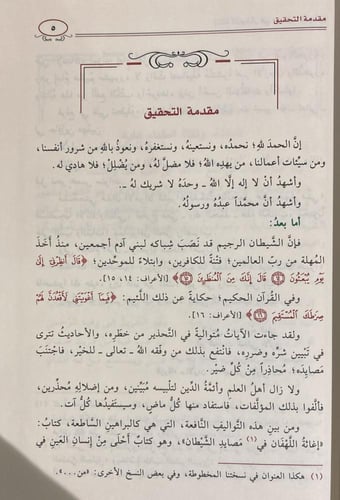 مقدمة التحقيق
٥
مقدمة التحقيق
إنَّ الحمدَ للهِ؛ نحمدُه، ونستعينُهُ، ونستغفرُه، ونعوذُ باللهِ من شرور أنفسنا،
ومن سيِّئات أعمالنا، من يهدِه اللهُ؛ فلا مضلَّ له، ومن يُضْلِلْ؛ فلا هادي له.
وأشهدُ أنْ لا إله إلَّا اللهُ ـ وحدَهُ لا شريك لهُ ـ.
وأشهدُ أنَّ محمَّداً عبدُهُ ورسولُهُ.
أما بعدُ:
فإنَّ الشيطان الرجيم قد نَصَبَ شِباكه لبني آدم أجمعين، منذُ أخَذَ
المُهلة من ربِّ العالمين؛ فتْنةً للكافرين، وابتلاءً للموحِّدين؛ ﴿قَالَ أَنظِرْنِي إِلَى
يَوْمِ يُبْعَثُونَ ۝١٤ قَالَ إِنَّكَ مِنَ الْمُنظَرِينَ ۝١٥﴾ [الأعراف: ١٤، ١٥].
وفي القُرآن الحكيم؛ حكايةً عن ذلك اللَّئيم: ﴿فَبِمَا أَغْوَيْتَنِي لَأَقْعُدَنَّ لَهُمْ
صِرَاطَكَ الْمُسْتَقِيمَ ۝١٦﴾ [الأعراف: ١٦].
ولقد جاءت الآياتُ مُتواليةً في التَّحذير من خطَرِه، والأحاديثُ تترى
في تَبْيين شرِّه وضررِه، فانْتفع بذلك من وفَّقه اللهُ ـ تعالى ـ للخَيْر، فاجتَنَبَ
مَصايِدَه؛ مُحاذِراً مِنْ كُلِّ ضَيْر.
ولا زال أهلُ العلمِ وأئمَّةُ الدِّين لتلْبيسه مُبَيِّنين، ومن إضلالِهِ محذِّرين،
فألَّفوا بذلك المؤلَّفات، فاستفاد منها كُلُّ ماضٍ، وسيستَفيدُها كُلُّ آت.
ومن بينِ هذه التَّواليفِ النَّافعة، التي هي كالبراهينِ السَّاطعة، كتابُ:
«إغاثةُ اللَّهْفَان في(١) مَصايِد الشَّيْطان»، وهو كتابٌ أحْلَى مِنْ إنسانِ العَيْن في
(١) هكذا العنوان في نسختنا المخطوطة، وفي بعض النسخ الأخرى: «من....».